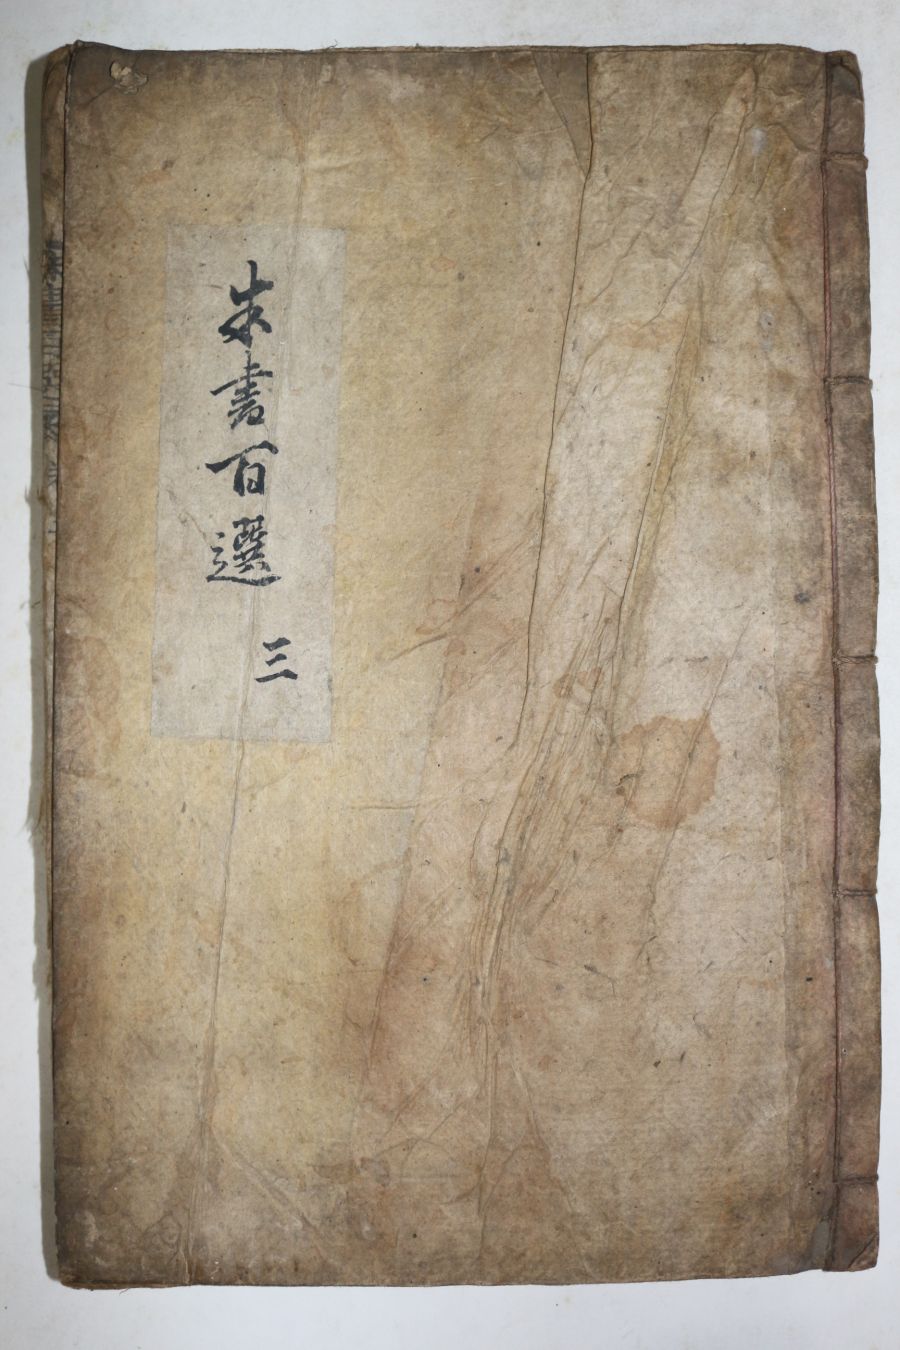 朱書百選
三